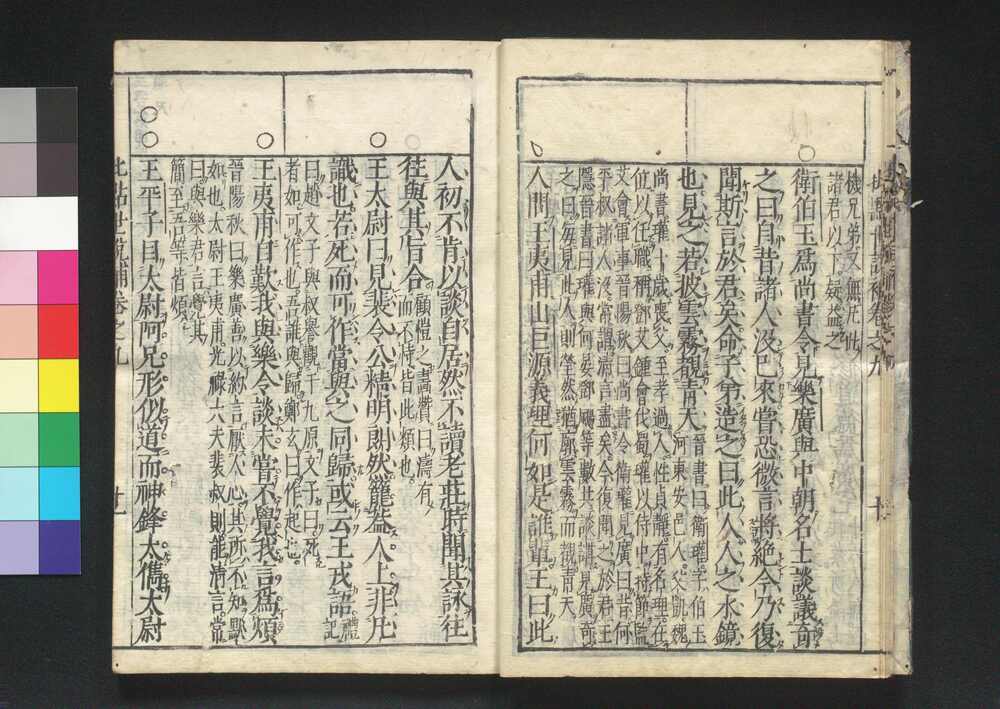 機兄弟又無凡此
諸君以下疑益之
衛伯玉爲尚書令見樂廣與中朝名士談議奇
之曰自昔諸人没已來嘗恐微言將絶今乃復
聞斯言於君矣命子弟造之曰此人人之水鏡
也見之若披雲霧覩青天
晉書曰衛瓘字伯玉
河東安邑人父凱魏
尚書瓘十歲喪父至孝過人性貞靜有名理在
位以任職稱鄧艾鍾會伐蜀瓘以侍中持節監
艾會軍事晉陽秋曰尚書令衛瓘見廣曰昔何
平叔諸人没常謂清言盡矣今復聞之於君王
隱晉書曰瓘與何晏鄧颺等數共談講見廣奇
之曰毎見此人則瑩然猶廓雲霧而覩青天
人問王夷甫山巨源義理何如是誰輩王曰此
人初不肯以談自居然不讀老莊時聞其詠往
往與其旨合
顧愷之畫贊曰濤有
而不恃皆此類也
王太尉曰見裴令公精明朗然籠蓋人上非凡
識也若死而可作當與之同歸或云王戎語
禮記
曰趙文子與叔譽觀于九原文子曰死
者如可作也吾誰與歸鄭玄曰作起也
王夷甫自歎我與樂令談未嘗不覺我言爲煩
晉陽秋曰樂廣善以約言厭人心其所不知默
如也太尉王夷甫光祿大夫裴叔則能清言常
曰與樂君言覺其
簡至吾等皆煩
王平子目太尉阿兄形似道而神鋒太儁太尉
世説補卷之九